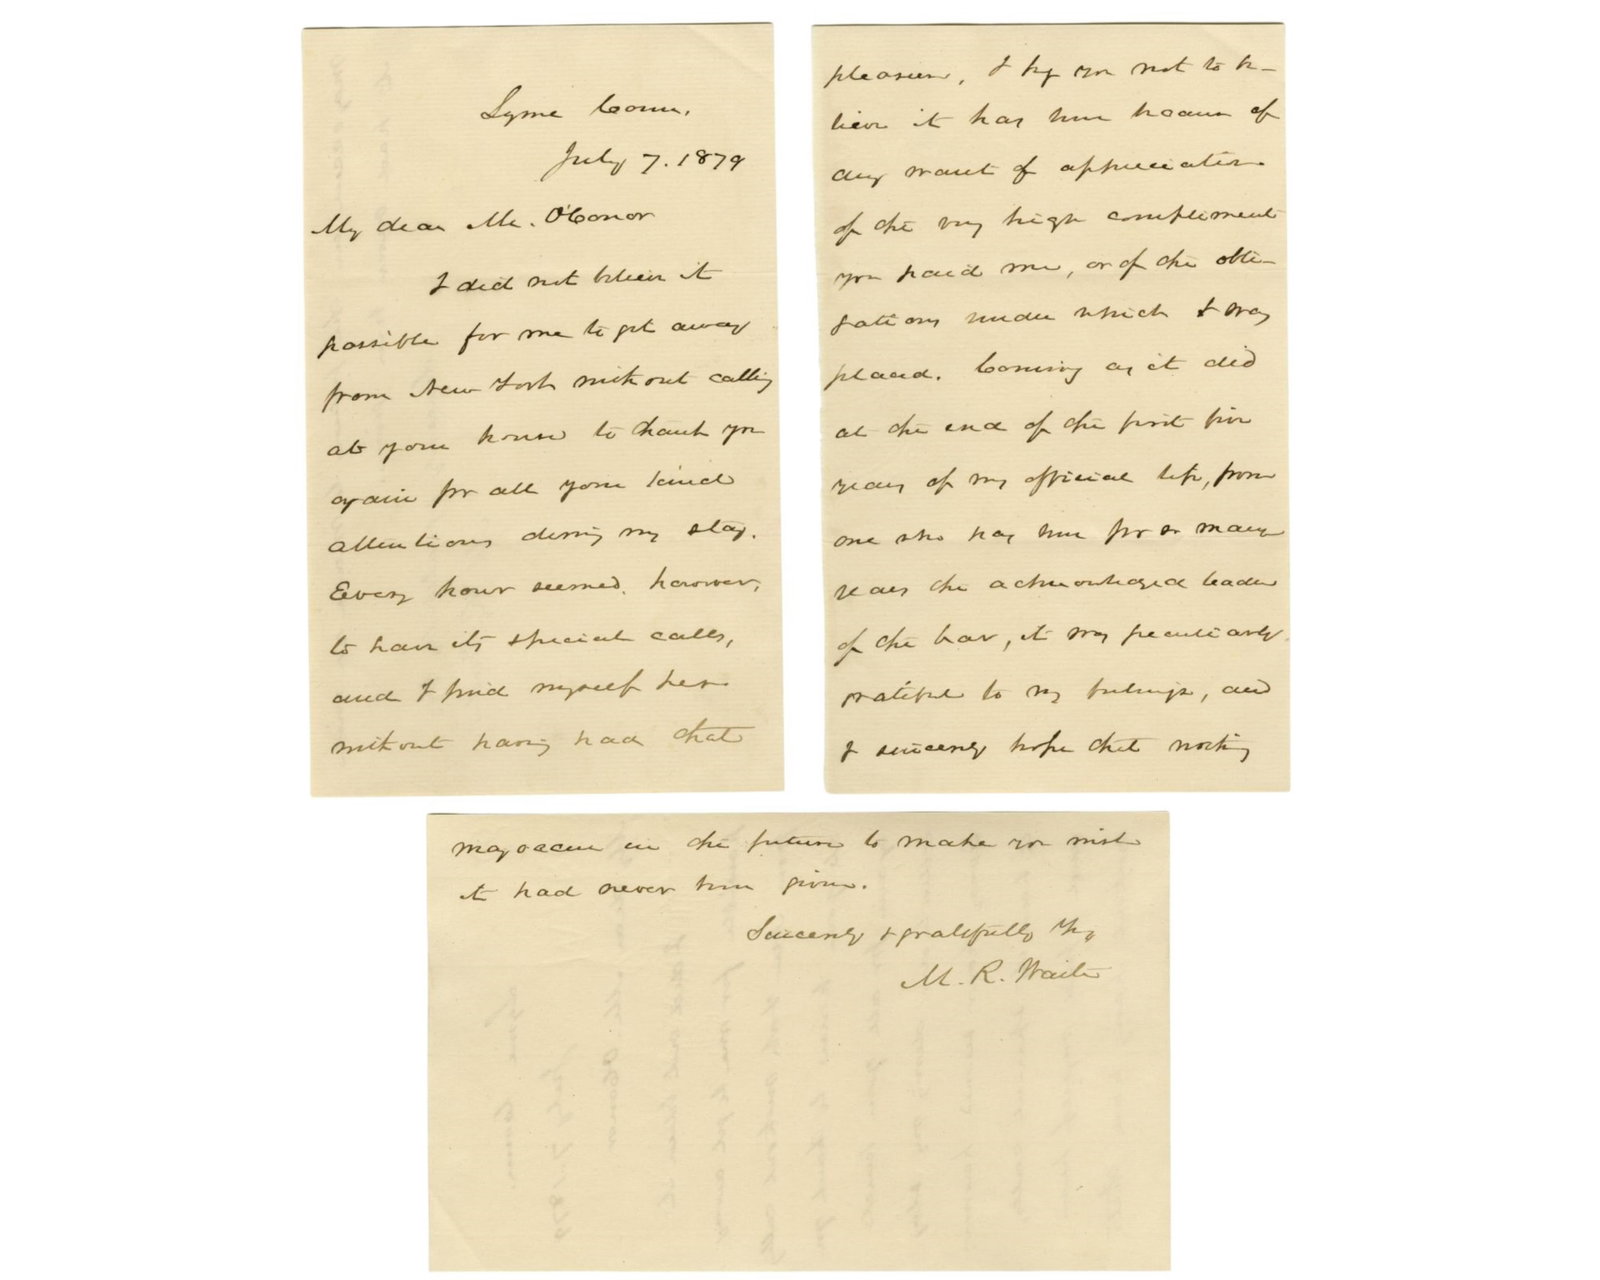 Lyme Conn.
July 7. 1879
My dear Mr. O'Conor
I did not believe it
possible for me to get away
from New York without calling
at your house to thank you
again for all your kind
attentions during my stay.
Every hour seemed, however,
to have its special calls,
and I find myself here
without having had that
pleasure. I beg you not to be-
lieve it has been because of
any want of appreciation
of the very high compliment
you paid me, or of the obli-
gations under which I was
placed. Coming as it did
at the end of the first five
years of my official life, from
one who has been for so many
years the acknowledged leader
of the bar, it was peculiarly
grateful to my feelings, and
I sincerely hope that nothing
may occur in the future to make you wish
it had never been given.
Sincerely & gratefully Yrs
M. R. Waite